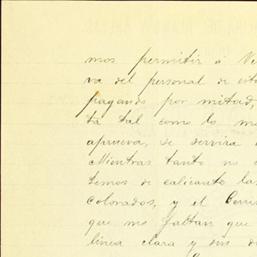 mos permitir á Ve
va del personal de esta
pagando por mitad,
ta tal como lo m
aprueva, se servira
Mientras tanto no
temos de calicanto la
Colorados, y el Cerri
que me faltan que
linea clara y sin d